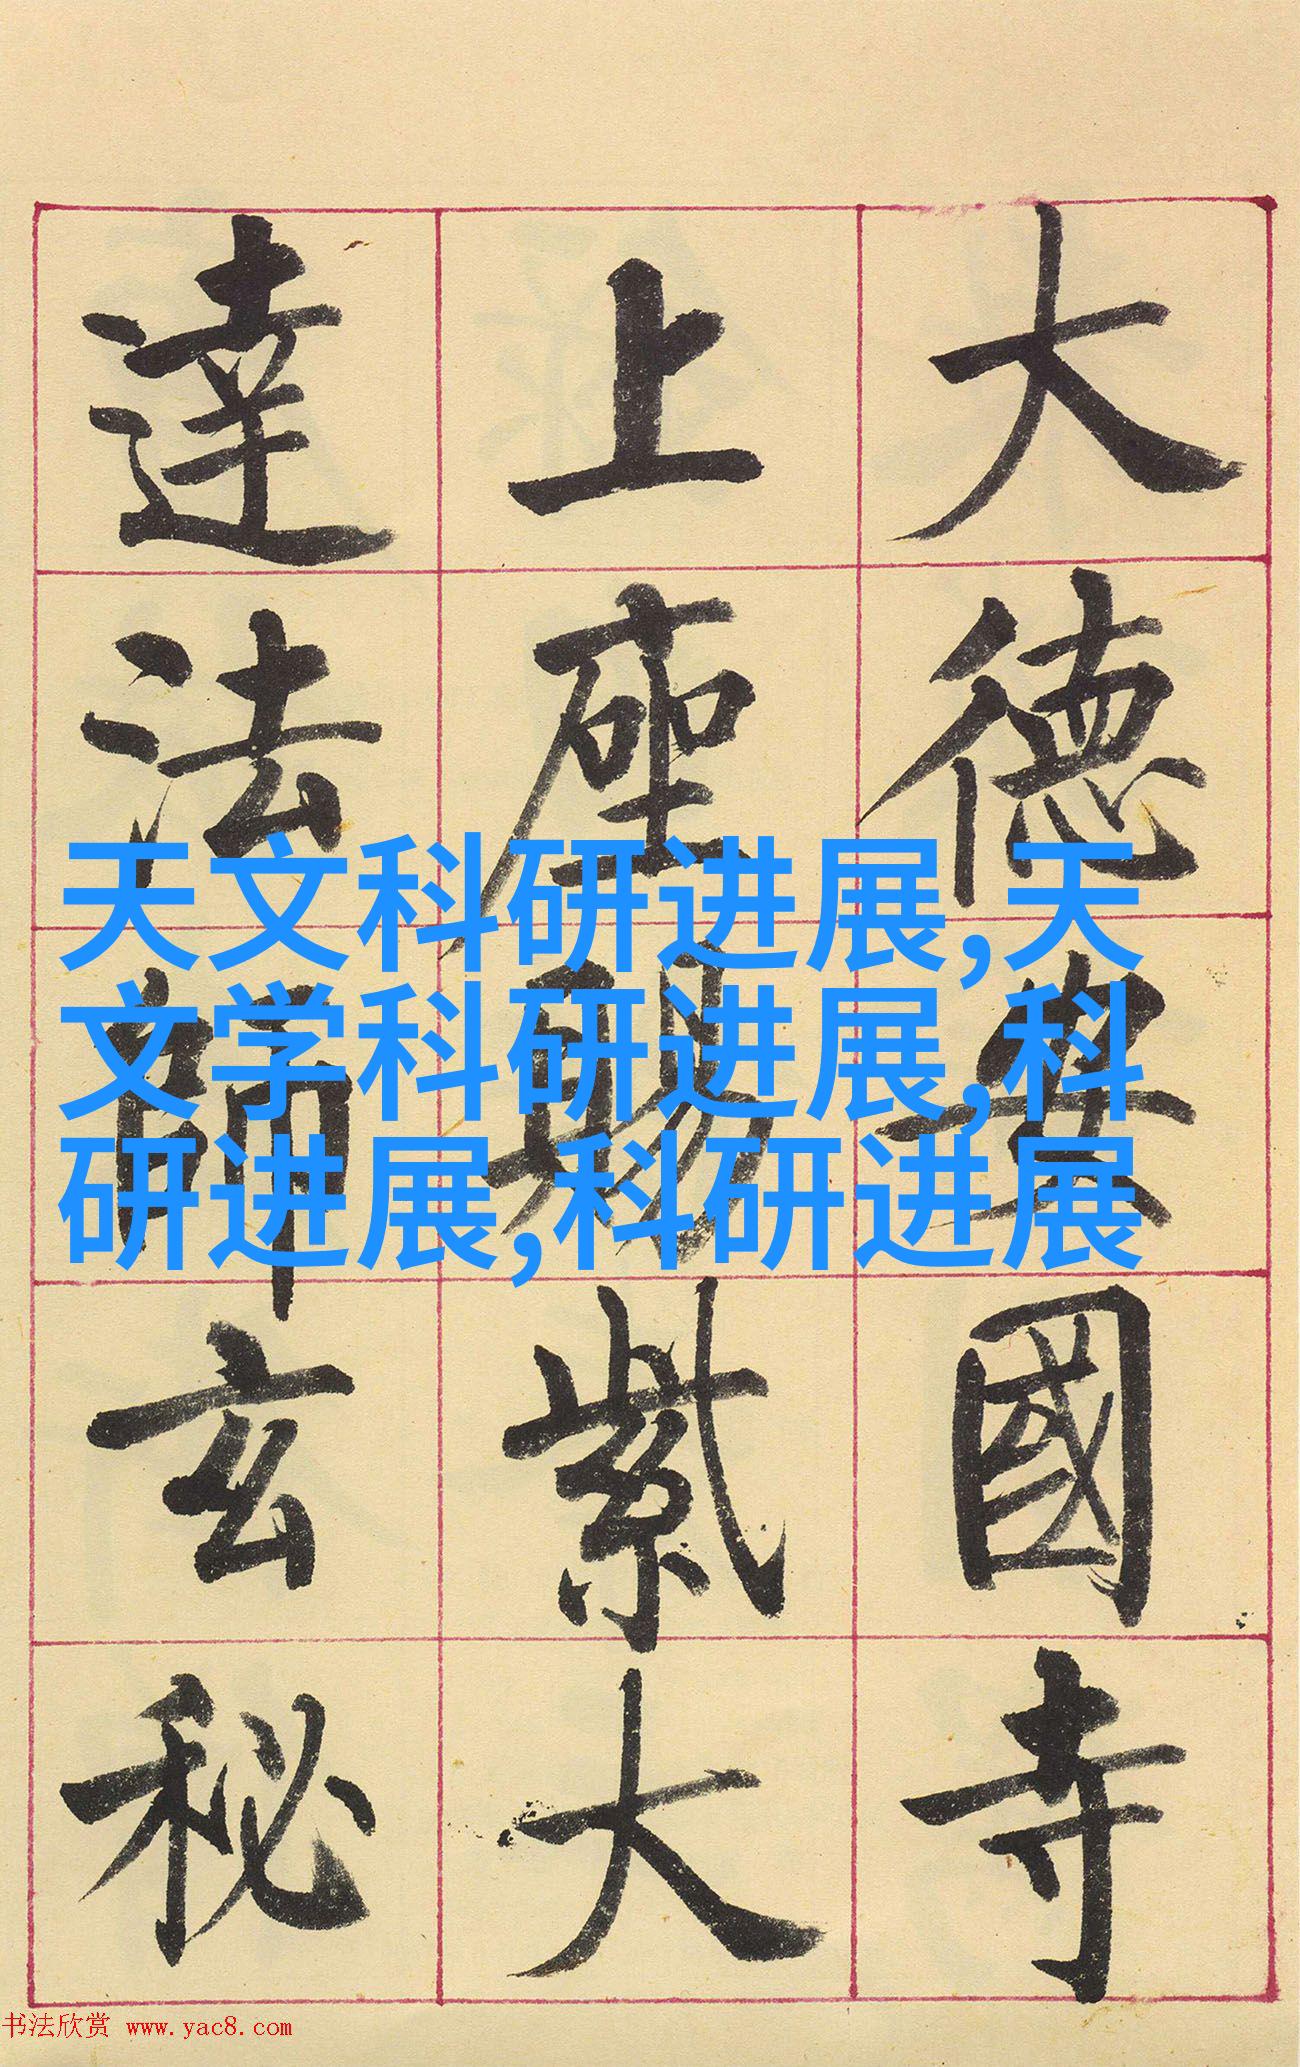 大德安國寺
上座賜紫大
達法師玄秘
天文科研进展,天
文学科研进展,科
研进展,科研进展
书法欣赏 www.yac8.com